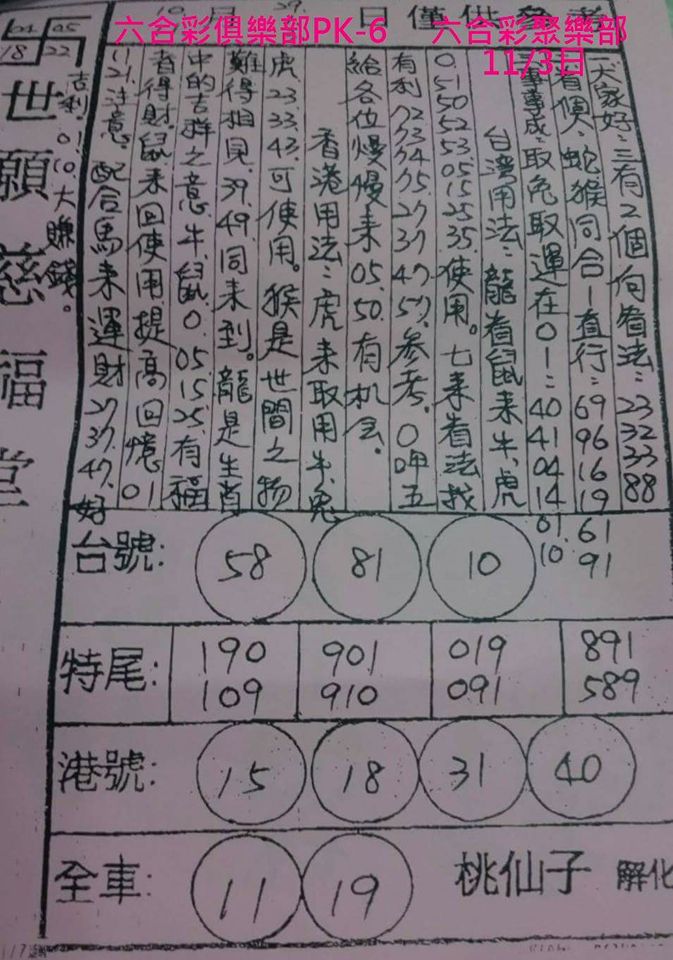 六合彩俱樂部PK-6
六合彩聚樂部
11/3日
10月29日僅供參考
大家好:三有2個向看法:23 32 33 88
有個人:蛇猴同合一直行:69 96 16 19 61 91
事成:取兔取運在01:40 41 04 14 01 10
台灣用法:龍看鼠來牛.虎
0.51 50 52 53 05 15 25 35.使用。七來看法找
有利72 73 74 75.27 37 47 57.參考。0呷五
給各位慢慢來05.50.有机会.
香港用法:虎來取用牛.兔
虎23.33.43.可使用。猴是世間之物
難得相見.39.49.同來到。龍是生肖
中的吉祥之意.牛.鼠0.05.15.25.有福
者得財.鼠來回使用.提高回憶01
11.21.注意.配合馬來運財27.37.47.好
吉利01.10大賺錢。
04 05
18 22
世願慈福堂
台號: 58 81 10
特尾: 190 901 019 891
109 910 091 589
港號: 15 18 31 40
全車: 11 19
桃仙子 解化